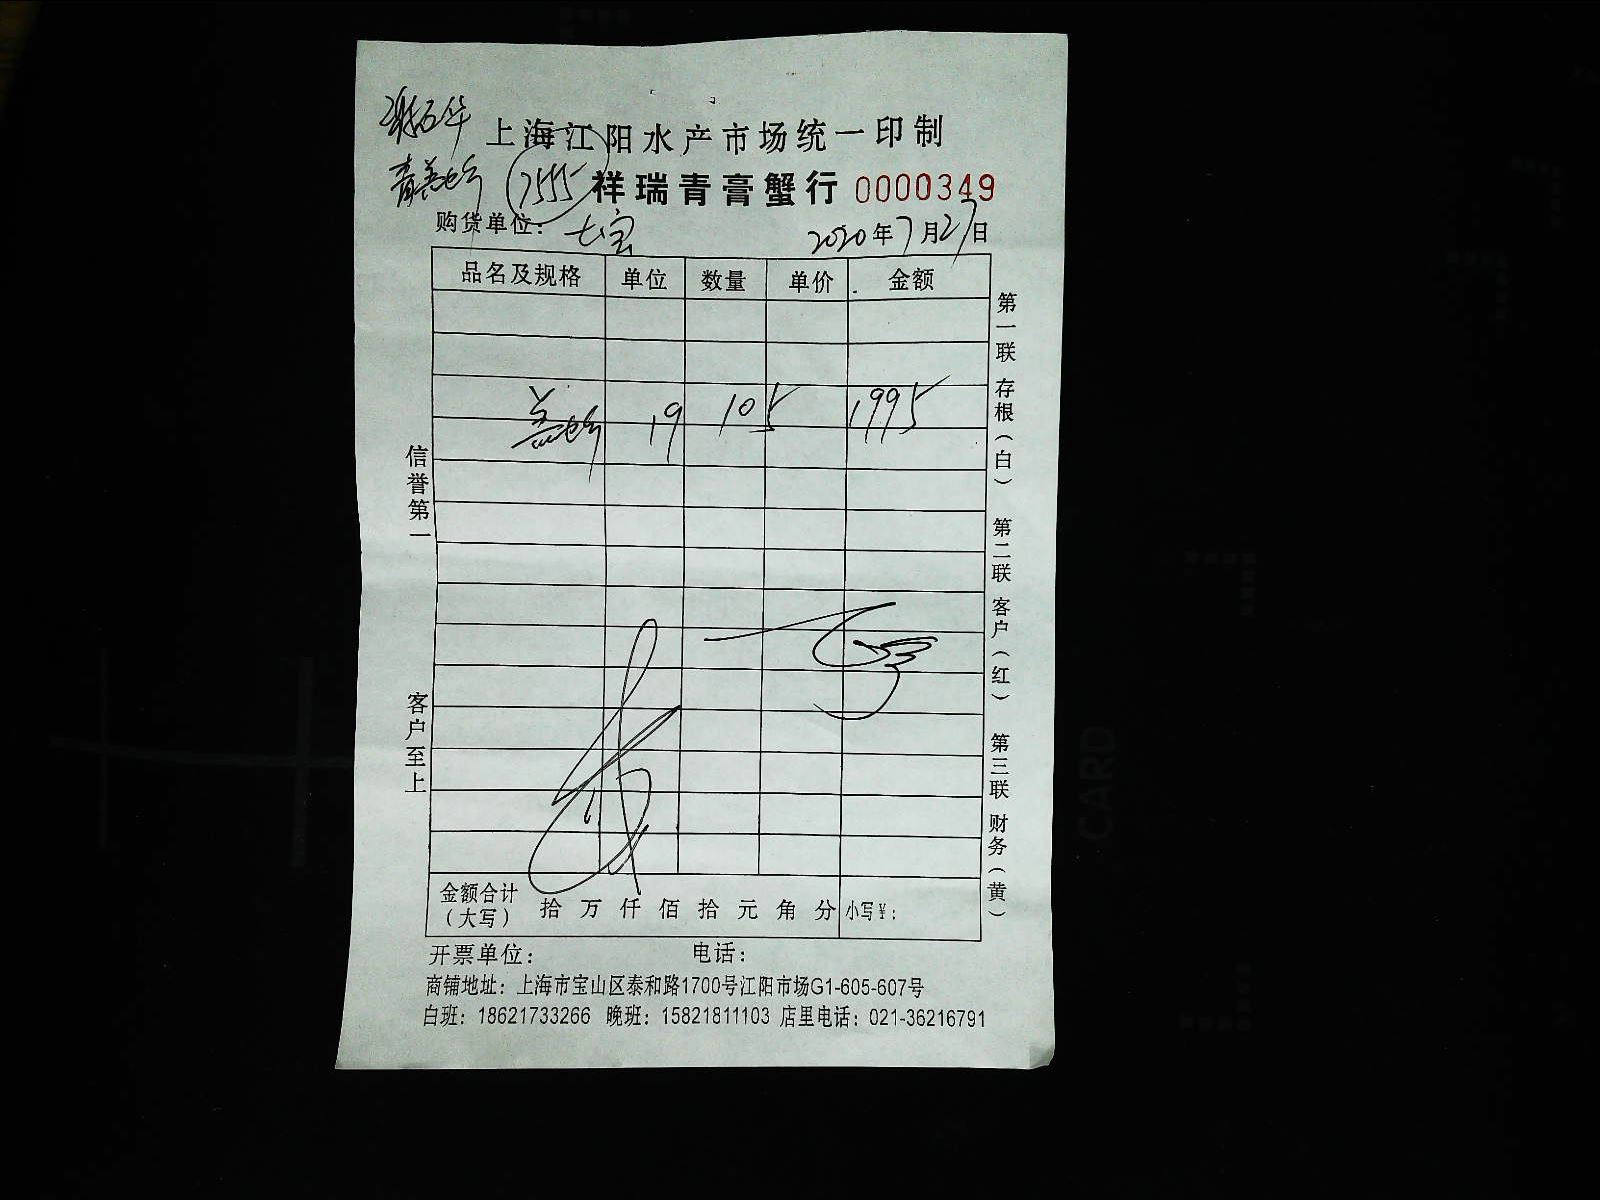 上海江阳水产市场统一印制
7555 祥瑞青膏蟹行 0000349
购货单位: 七宝 2020年7月27日
品名及规格 单位 数量 单价 金额
19 105 1995
信誉第一
客户至上
第一联 存根(白) 第二联 客户(红) 第三联 财务(黄)
金额合计(大写) 拾 万 仟 佰 拾 元 角 分 小写¥:
开票单位: 电话:
商铺地址: 上海市宝山区泰和路1700号江阳市场G1-605-607号
白班: 18621733266 晚班: 15821811103 店里电话: 021-36216791
CARD